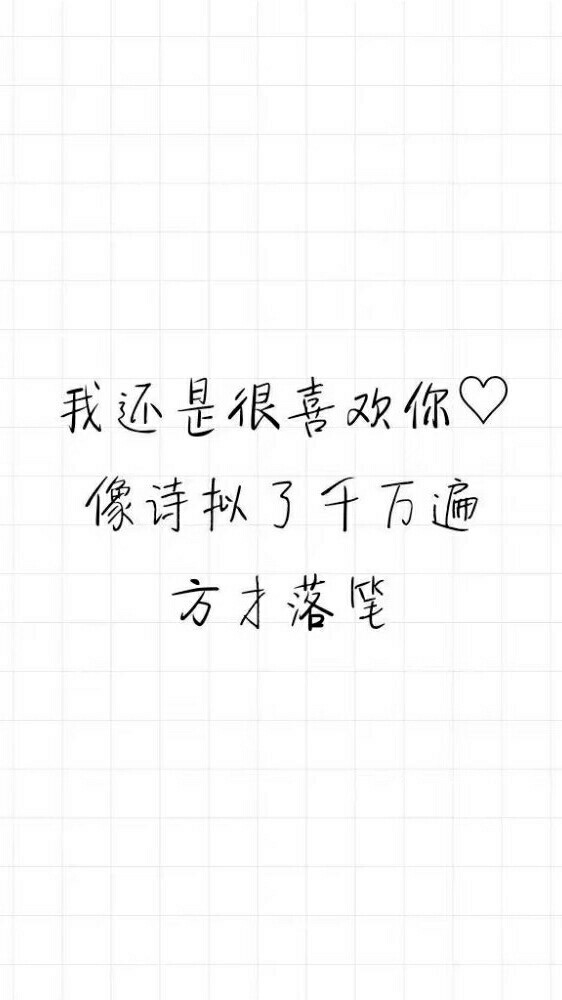 我还是很喜欢你♡
像诗拟了千万遍
方才落笔